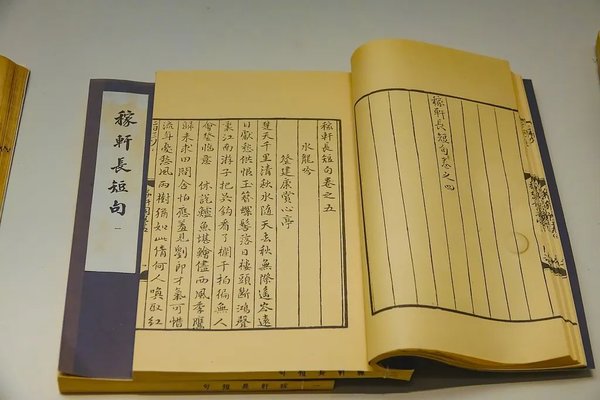 稼軒長短句卷之四
稼軒長短句卷之五
水龍吟
登建康賞心亭
楚天千里清秋水隨天去秋無際遙岑遠
目獻愁供恨玉簪螺髻落日樓頭斷鴻聲
裏江南游子把吳鉤看了欄干拍徧無人
會登臨意 休說鱸魚堪鱠儘西風季鷹
歸未求田問舍怕應羞見劉郎才氣可惜
流年憂愁風雨樹猶如此倩何人喚取紅
稼軒長短句 一
稼軒長短句 一